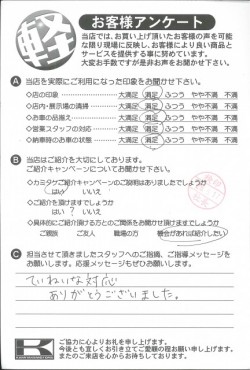 軽
お客様アンケート
当店では、お買い上げ頂いたお客様の声を可能
な限り現場に反映し、お客様により良い商品と
サービスを提供する事に努めています。
大変お手数ですが是非お声をお聞かせ下さい。
A 当店を実際にご利用になった印象をお聞かせ下さい。
◇店の印象 大満足 満足 ふつう やや不満 不満
◇店内・展示場の清掃 大満足 満足 ふつう やや不満 不満
◇お車の品揃え 大満足 満足 ふつう やや不満 不満
◇営業スタッフの対応 大満足 満足 ふつう やや不満 不満
◇納車時のお車の状態 大満足 満足 ふつう やや不満 不満
B 当店はご紹介を大切にしております。
ご紹介キャンペーンについてお聞かせ下さい。
◇カミタケご紹介キャンペーンのご説明はありましたでしょうか
はい いいえ
◇ご紹介を頂けますでしょうか
はい いいえ
◇具体的にご紹介頂ける方とのご関係をお聞かせ頂けますでしょうか
ご親族 ご友人 職場の方 機会があれば紹介したい
C 担当させて頂きましたスタッフへのご指摘、ご指導メッセージを
お願いします。応援メッセージもぜひお願いします。
ていねいな対応
ありがとうございました。
K
ご協力に心よりお礼を申し上げます。
今後とも宜しくお引き立てご愛顧の程お願い申し上げます。
またのご来店を心からお待ちしております。